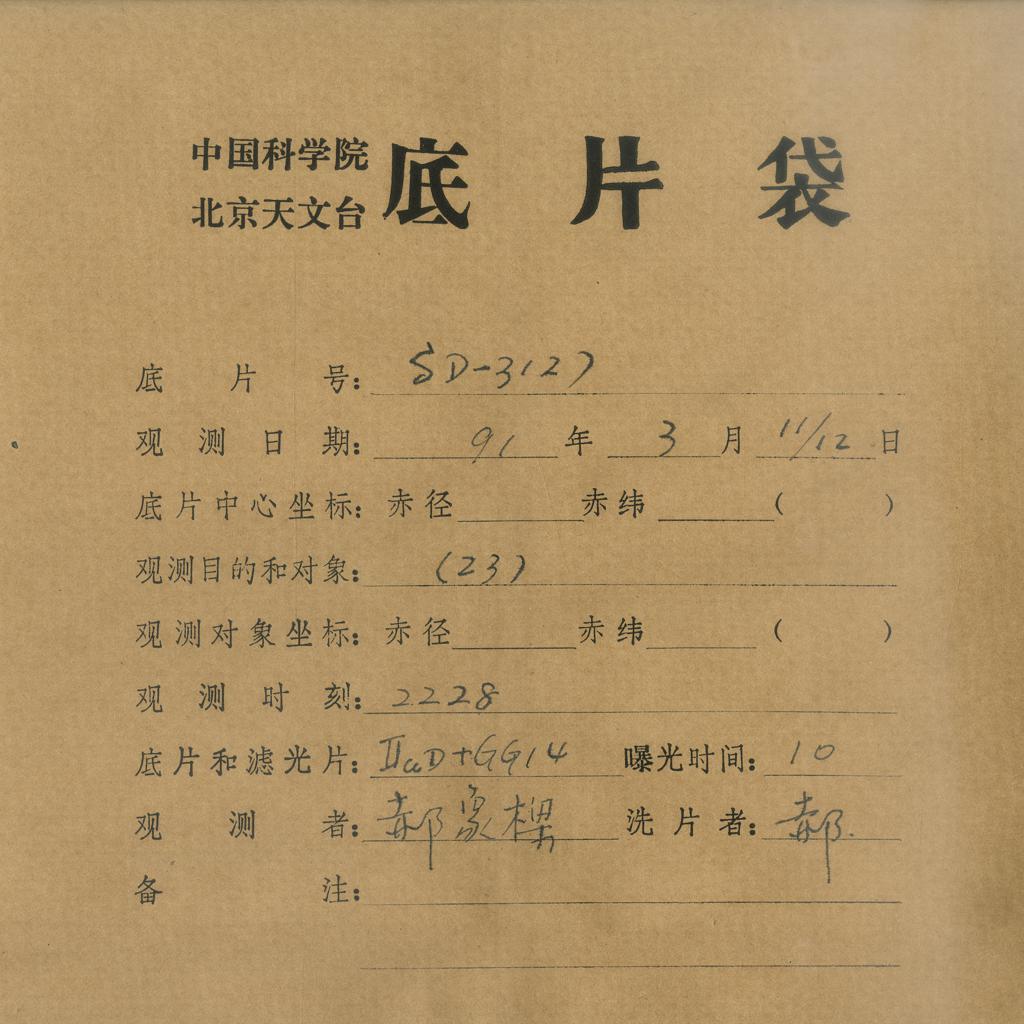 中国科学院
北京天文台
底片袋
底片号：SD-3127
观测日期：91年3月11/12日
底片中心坐标：赤径 赤纬 （ ）
观测目的和对象：（23）
观测对象坐标：赤径 赤纬 （ ）
观测时刻：2228
底片和滤光片：IIaD+GG14 曝光时间：10
观测者：郝象樑 洗片者：郝.
备注：